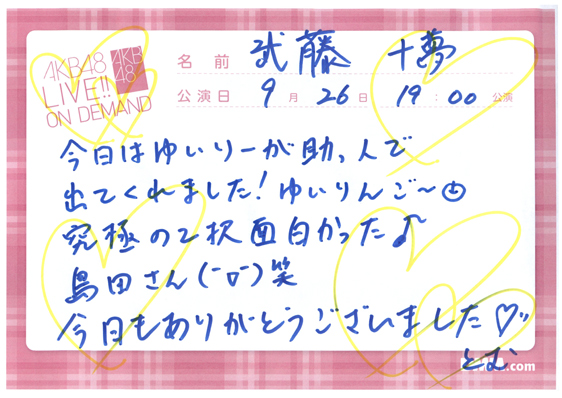 AKB48
LIVE!!
ON DEMAND
AKB
48
名前 武藤 十夢
公演日 9月26日 19:00公演
今日はゆいりーが助っ人で
出てくれました!ゆいりんご〜
究極の2択面白かった♪
島田さん(ˉ▽ˉ)笑
今日もありがとうございました♡
とむ
.com